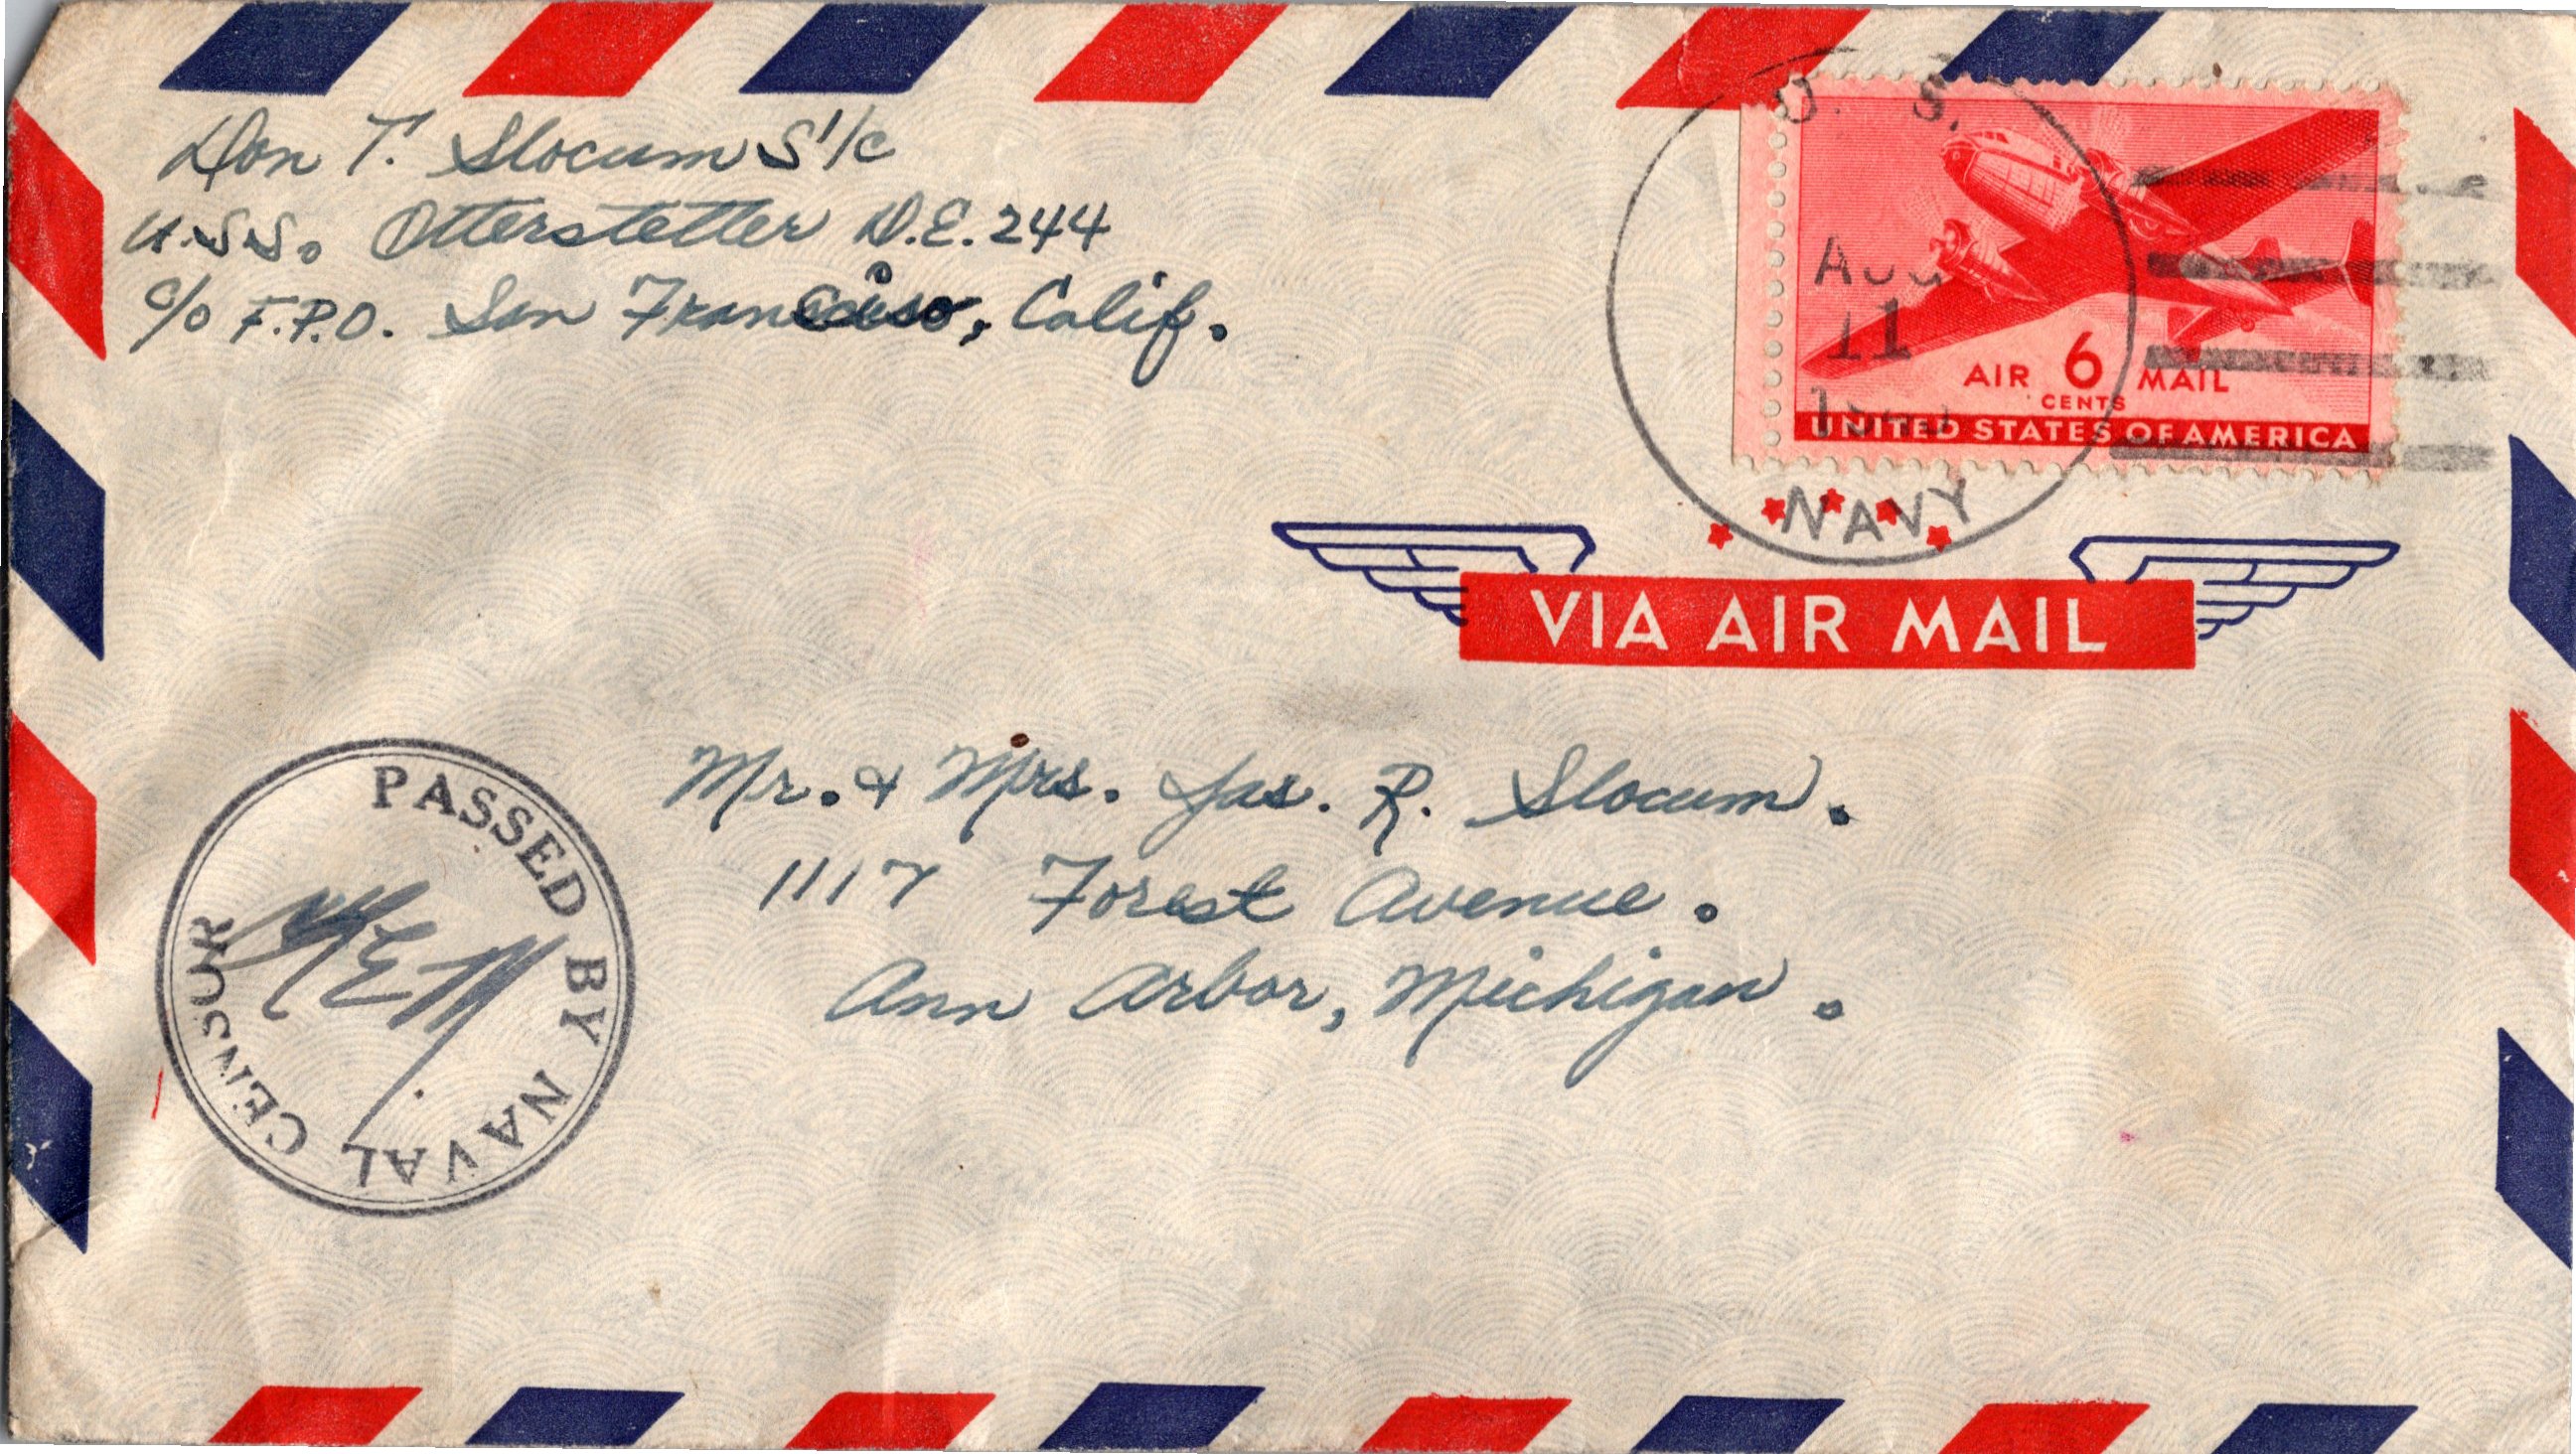 Don T. Slocum S1/c
U.S.S. Otterstetter D.E. 244
c/o F.P.O. San Francisco, Calif.
U. S.
AUG
11
NAVY
AIR 6 MAIL
CENTS
UNITED STATES OF AMERICA
VIA AIR MAIL
PASSED BY NAVAL CENSOR
Mr. & Mrs. Jas. R. Slocum.
1117 Forest Avenue.
Ann Arbor, Michigan.